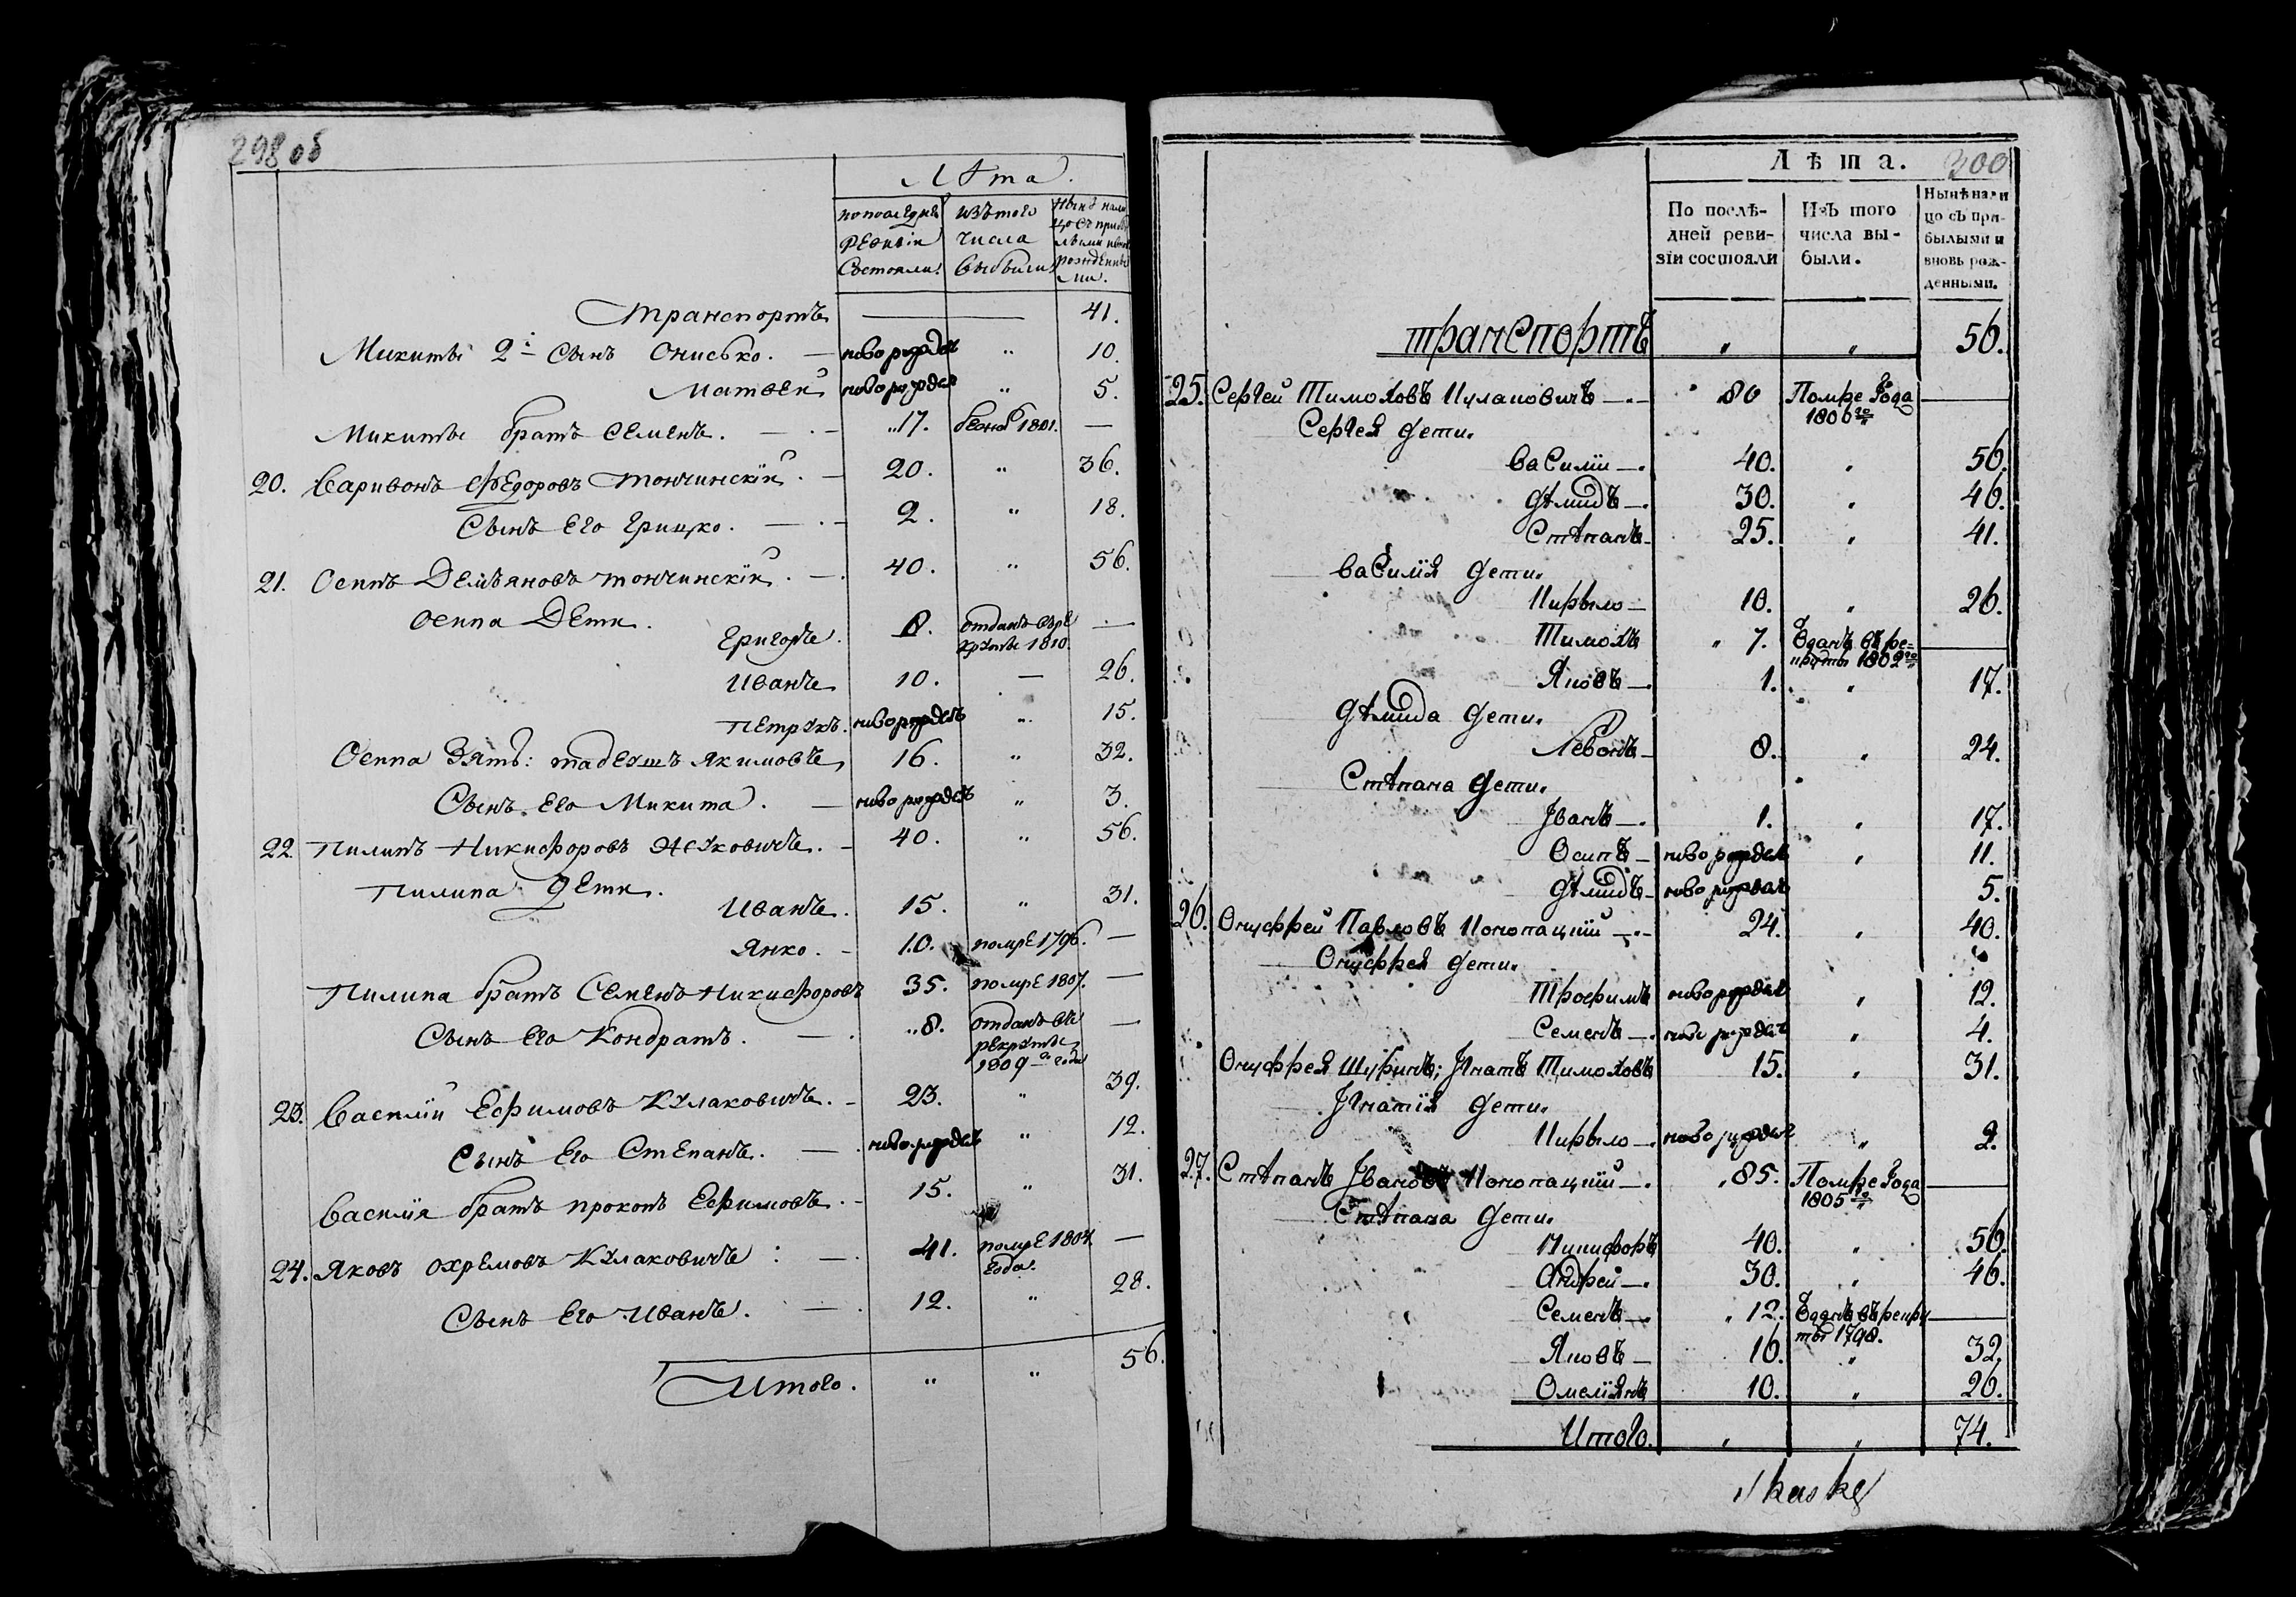 298 об
Лѣта.
по последней ревизіи Состояли. | изъ того числа выбыли | Ныне налицо съ прибылыми и вновь рожденными.
Транспортъ — 41.
Микиты 2й Сынъ Онисько. — новорожденъ " 10.
Матвей новорожден " 5.
Микиты братъ Семенъ. — 17. 1801. —
20. Варивонъ Федоровъ Тончинскій. — 20. " 36.
Сынъ Его Грицко. — 2. " 18.
21. Осипъ Демьяновъ Тончинскій. — 40. " 56.
Осипа Дети.
Григорѣ. 8. отданъ въ рекруты 1810. —
Иванъ 10. — 26.
Петрукъ. новорожденъ " 15.
Осипа Зять: Тадеушъ Якимовъ 16. " 32.
Сынъ Его Микита. — новорожденъ " 3.
22. Пилипъ Никифоровъ 40. " 56.
Пилипа Дети.
Иванъ. 15. " 31.
Янко. — 10. помре 1796. —
Пилипа братъ Семенъ Никифоровъ 35. помре 1807. —
Сынъ Его Кондратъ. — 8. отданъ въ рекруты 1809 года —
23. Василій Ефимовъ Кулаковичъ. — 23. " 39.
Сынъ Его Степанъ. — новорожденъ " 12.
Василія братъ Прокопъ Ефимовъ. — 15. " 31.
24. Яковъ Охремовъ Кулаковичъ: — 41. помре 1804 года. —
Сынъ Его Иванъ. — 12. " 28.
Итого. " " 56.
Лѣта. 300
По послѣдней ревизіи состояли | Изъ того числа выбыли. | Нынѣ налицо съ прибылыми и вновь рожденными.
Транспортъ " " 56.
25. Сергей Тимоховъ Кулаковичъ — 80 Помре Года 1806го —
Сергея дети.
Василіи — 40. " 56.
Дѣмидъ — 30. " 46.
Стѣпанъ — 25. " 41.
Василія дети.
Кирыло — 10. " 26.
Тимохъ " 7. Зданъ въ рекруты 1802го —
Яковъ — 1. " 17.
Дѣмида дети.
Левонъ — 8. " 24.
Стѣпана дети.
Іванъ — 1. " 17.
Осипъ — новорожденъ " 11.
Дѣмидъ — новорожденъ 5.
26. Онуфрей Павловъ Конопацкій — 24. " 40.
Онуфрея дети.
Трофимъ новорожденъ " 12.
Семенъ — новорожденъ " 4.
Онуфрея Шуринъ; Ігнатъ Тимоховъ 15. " 31.
Ігнатія дети.
Кирыло — новорожденъ " 2.
27. Стѣпанъ Івановъ Конопацкій — 85. Помре Года 1805го —
Стѣпана дети.
Никифоръ 40. " 56.
Андрей — 30. " 46.
Семенъ — " 12. Зданъ въ рекруты 1798. —
Яковъ — 16. " 32.
Омеліянъ 10. " 26.
Итого. " " 74.